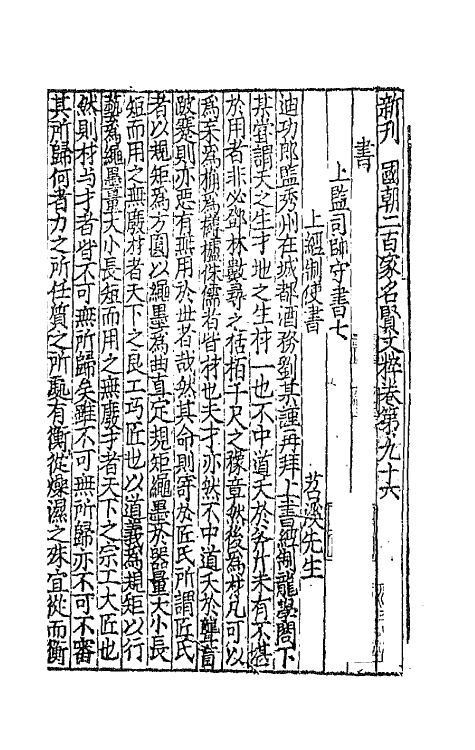 新刊　國朝二百家名賢文粹卷第九十六
書
上監司帥守書七
上經制使書　苕溪先生
迪功郎監秀州在城都酒務劉某謹再拜上書經制龍學閤下
某嘗謂天之生才地之生材一也不中道夭於斧斤未有不堪
於用者非必鄧林數尋之栝栢千尺之豫章然後為材凡可以
為杗為桷為欂櫨侏儒者皆材也夫才亦然不中道夭於聾盲
跛躄則亦惡有無用於世者哉然其命則寄於匠氏所謂匠氏
者以規矩為方圓以繩墨為曲直定規矩繩墨於器量大小長
短而用之無廢材者天下之良工巧匠也以道義為規矩以行
藝為繩墨量大小長短而用之無廢才者天下之宗工大匠也
然則材与才者皆不可無所歸矣雖不可無所歸亦不可不審
其所歸何者力之所任質之所處有衡從燥濕之殊宜從而衡